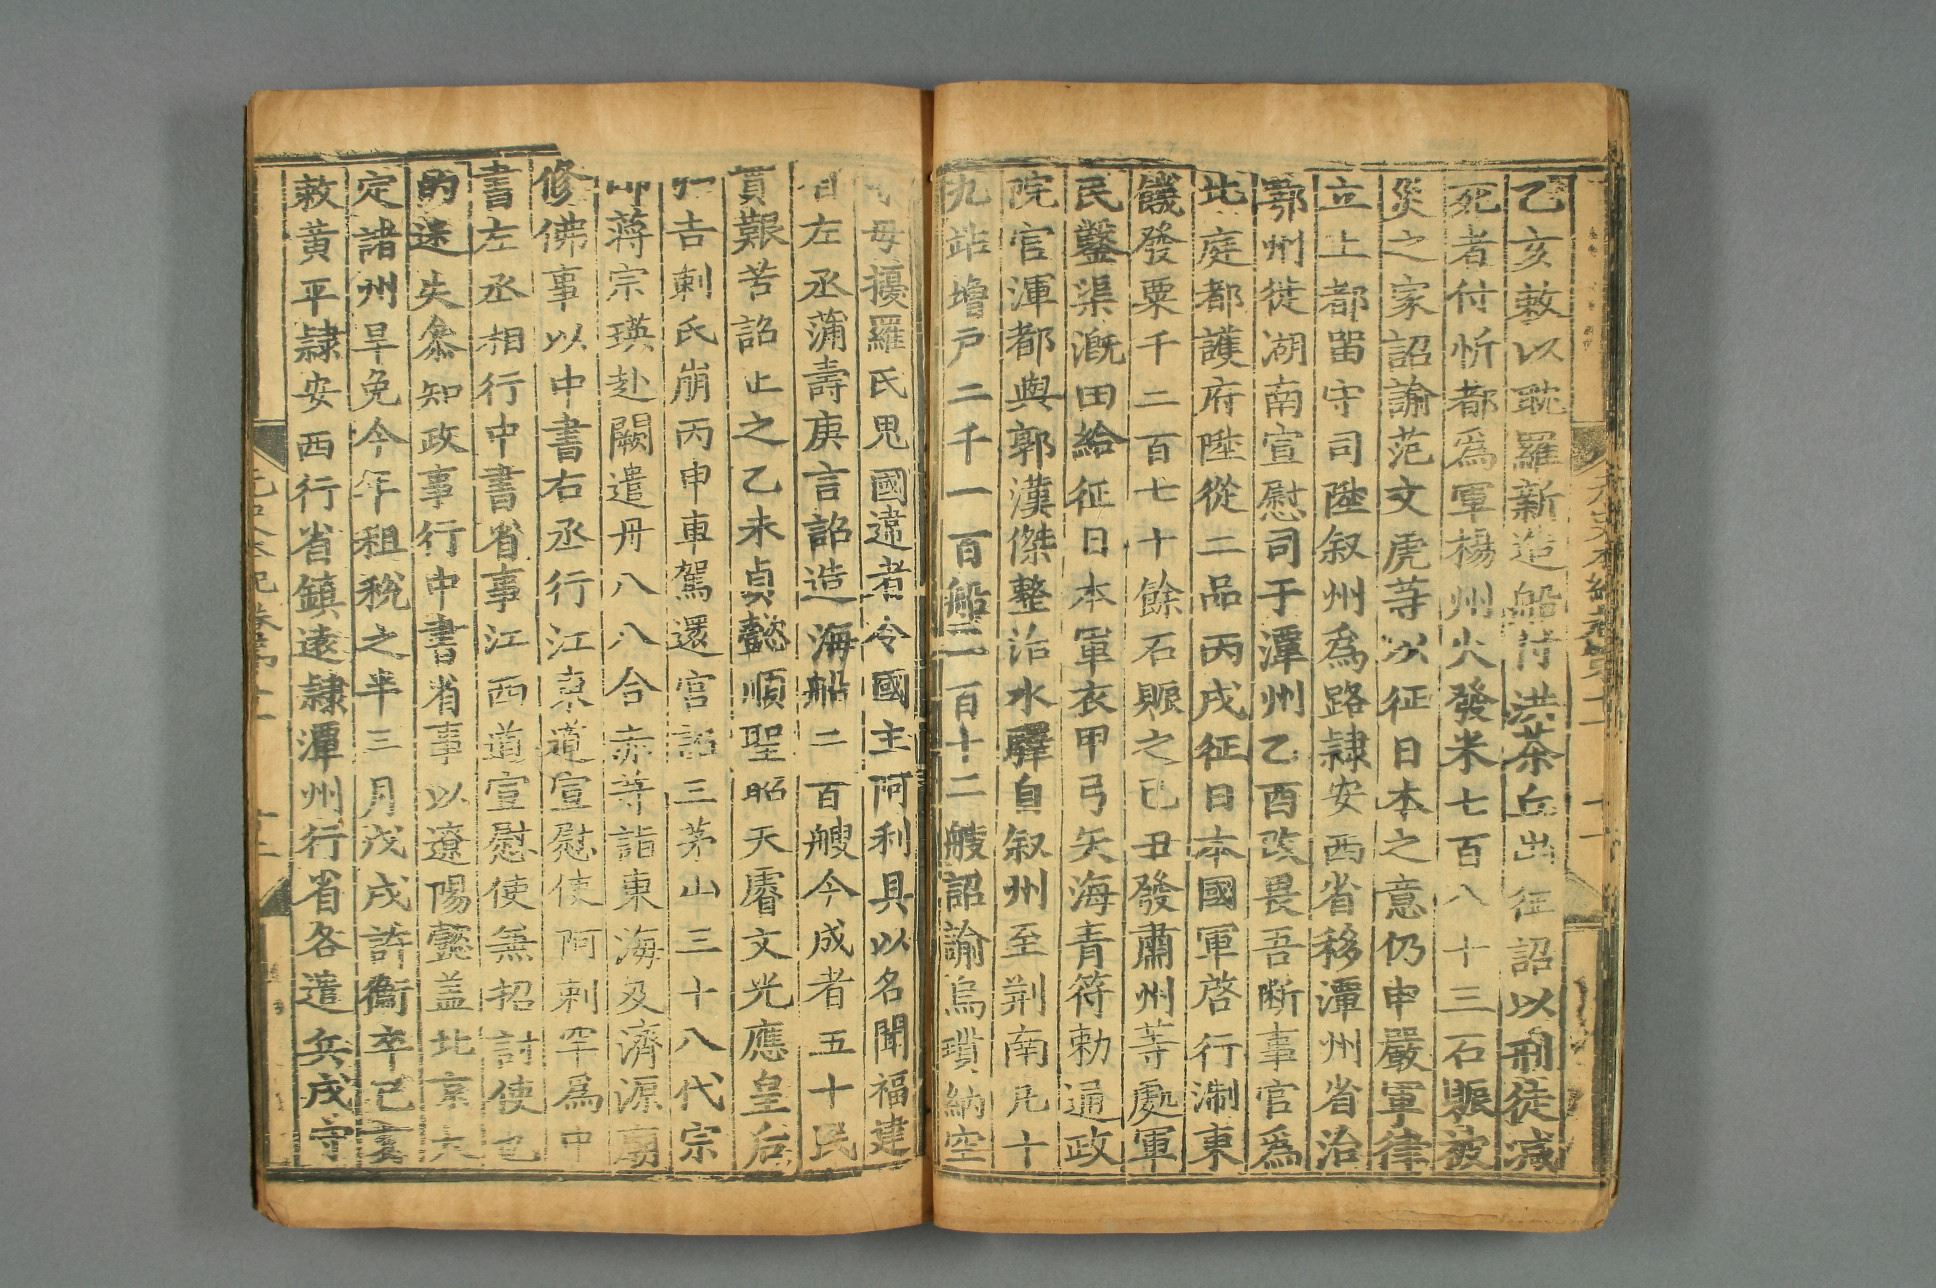 乙亥敕以耽羅新造船付洪茶丘出征詔以刑徒減
死者付忻都爲軍揚州火發米七百八十三石賑被
災之家詔諭范文虎等以征日本之意仍申嚴軍律
立上都留守司陞叙州爲路隷安西省移潭州省治
鄂州徙湖南宣慰司于潭州乙酉改畏吾斷事官爲
北庭都護府陞從二品丙戌征日本國軍啓行浙東
饑發粟千二百七十餘石賑之己丑發肅州等處軍
民鑿渠漑田給征日本軍衣甲弓矢海青符勅通政
院官渾都與郭漢傑整治水驛自叙州至荆南凡十
九站增户二千一百船二百十二艘詔諭烏瑣納空
毋擾羅氏鬼國違者令國主阿利具以名聞福建
省左丞蒲壽庚言詔造海船二百艘今成者五十民
實艱苦詔止之乙未貞懿順聖昭天睿文光應皇后
弘吉剌氏崩丙申車駕還宮詔三茅山三十八代宗
師蔣宗瑛赴闕遣丹八八合赤等詣東海及濟源廟
修佛事以中書右丞行江東道宣慰使阿剌罕爲中
書左丞相行中書省事江西道宣慰使兼招討使也
的迷失叅知政事行中書省事以遼陽懿盖北京大
定諸州旱免今年租稅之半三月戊戌許衡卒己亥
敕黃平隷安西行省鎮遠隷潭州行省各遣兵戍守
元史本紀卷第十一
十二